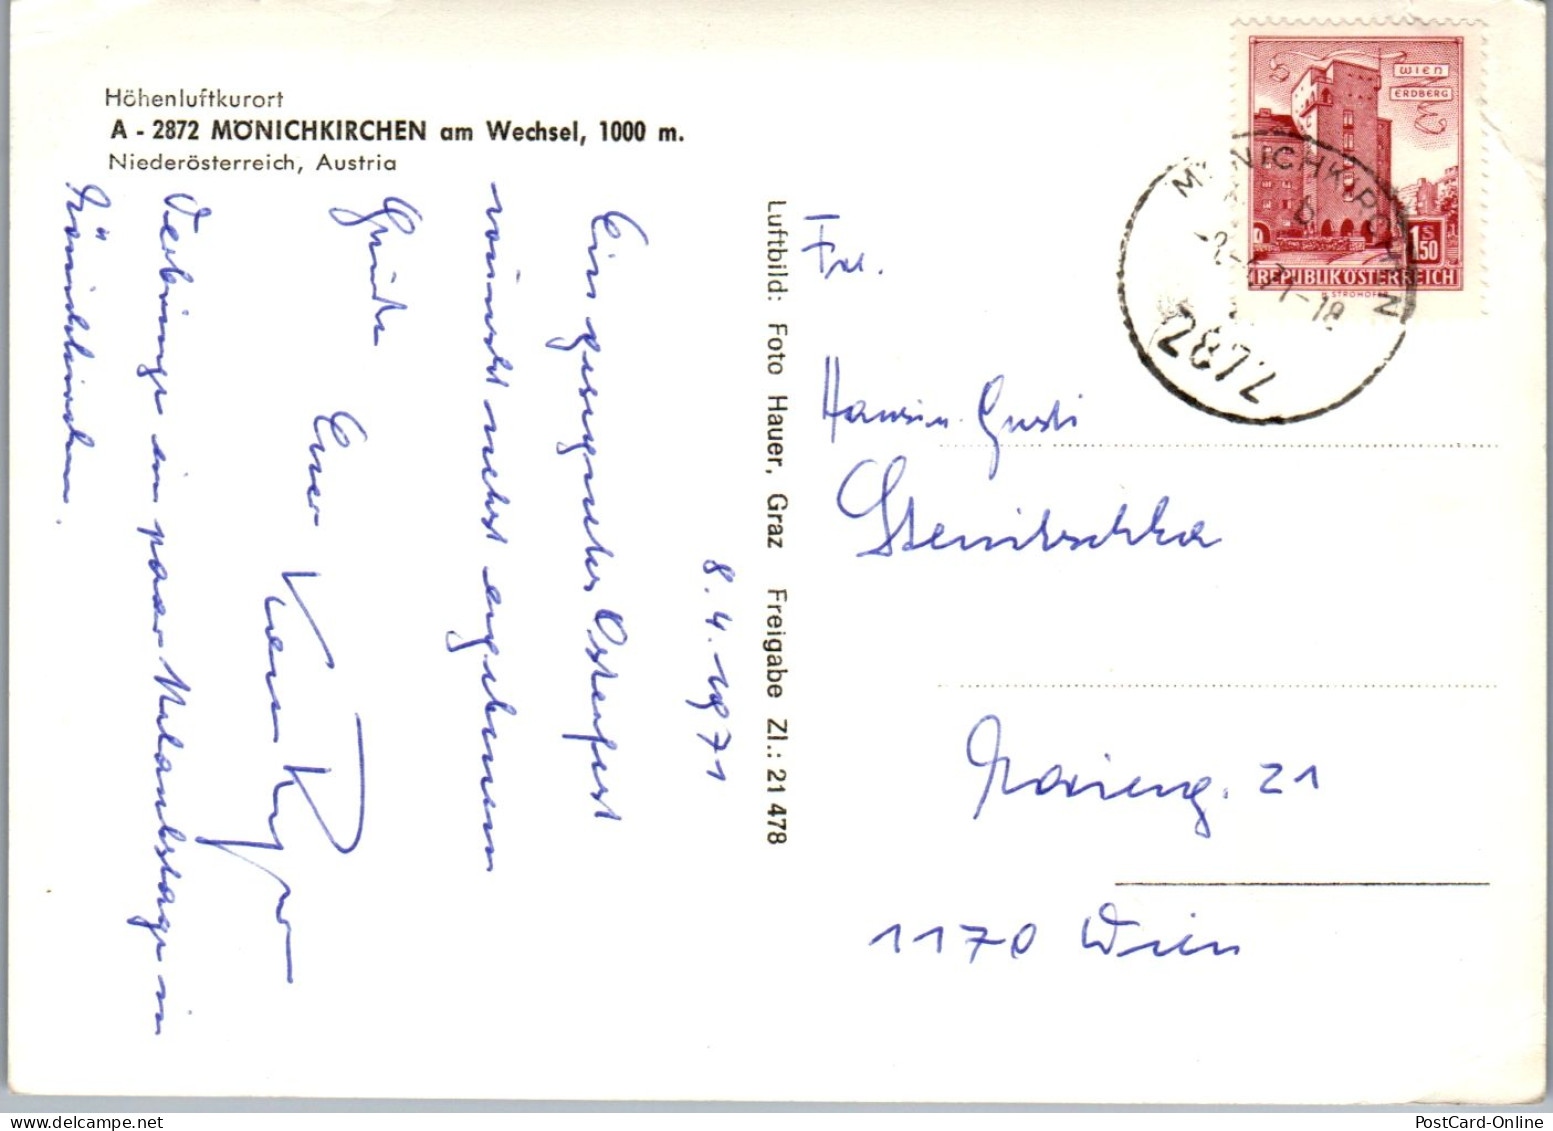 Höhenluftkurort
A - 2872 MÖNICHKIRCHEN am Wechsel, 1000 m.
Niederösterreich, Austria
8.4.1971
Ein gesegnetes Osterfest
wünscht nebst ergebenen
Grüßen
Euer
Verbringe ein paar Urlaubstage in
Mönichkirchen.
Luftbild: Foto Hauer, Graz Freigabe Zl.: 21 478
WIEN
ERDBERG
1S50
REPUBLIK ÖSTERREICH
H. STROHOFER
MÖNICHKIRCHEN
b
2872
Gusti
1170 Wien
21
PostCard-Online